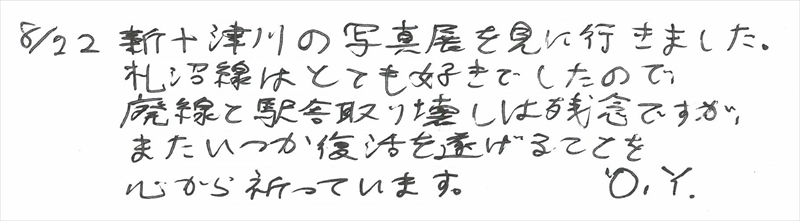 8/22 新十津川の写真展を見に行きました。
札沼線はとても好きでしたので、
廃線と駅舎取り壊しは残念ですが、
またいつか復活を遂げることを
心から祈っています。 O.Y.